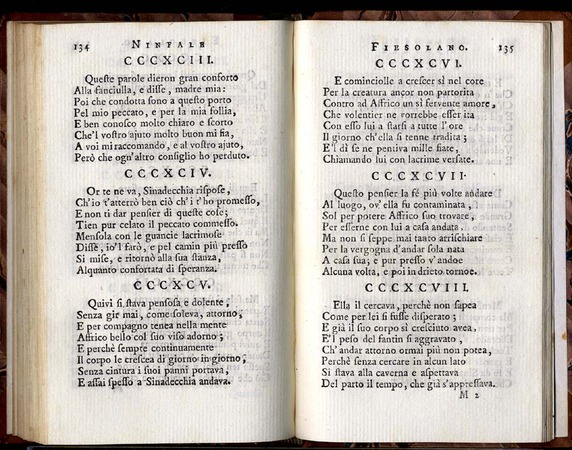 134 NINFALE
CCCXCIII.
Queste parole dieron gran conforto
Alla fanciulla, e disse, madre mia:
Poi che condotta sono a questo porto
Pel mio peccato, e per la mia follia,
E ben conosco molto chiaro e scorto
Che'l vostro ajuto molto buon mi fia,
A voi mi raccomando, e al vostro ajuto,
Però che ogn'altro consiglio ho perduto.
CCCXCIV.
Or te ne va, Sinadecchia rispose,
Ch'io t'atterrò ben ciò ch'i t'ho promesso,
E non ti dar pensier di queste cose;
Tien pur celato il peccato commesso.
Mensola con le guancie lacrimose
Disse, io'l farò, e pel camin più presso
Si mise, e ritornò alla sua stanza,
Alquanto confortata di speranza.
CCCXCV.
Quivi si stava pensosa e dolente,
Senza gir mai, come soleva, attorno,
E per compagno tenea nella mente
Affrico bello col suo viso adorno;
E perchè sempre continuamente
Il corpo le crescea di giorno in giorno,
Senza cintura i suoi panni portava,
E assai spesso a Sinadecchia andava.
FIESOLANO. 135
CCCXCVI.
E cominciolle a crescer sì nel core
Per la creatura ançor non partorita
Contro ad Affrico un sì fervente amore,
Che volentier ne vorrebbe esser ita
Con esso lui a starsi a tutte l'ore
Il giorno ch'ella si tenne tradita;
E'l dì se ne pentiva mille fiate,
Chiamando lui con lacrime versate.
CCCXCVII.
Questo pensier la fè più volte andare
Al luogo, ov'ella fu contaminata,
Sol per potere Affrico suo trovare,
Per esserne con lui a casa andata.
Ma non si seppe mai tanto arrischiare
Per la vergogna d'andar sola nata
A casa sua; e pur presso v'andoe
Alcuna volta, e poi in drieto tornoe.
CCCXCVIII.
Ella il cercava, perchè non sapea
Come per lei si fusse disperato;
E già il suo corpo sì cresciuto avea,
E'l peso del fantin sì aggravato,
Ch'andar attorno ormai più non potea,
Perchè senza cercare in alcun lato
Si stava alla caverna e aspettava
Del parto il tempo, che già s'appressava.
M 2